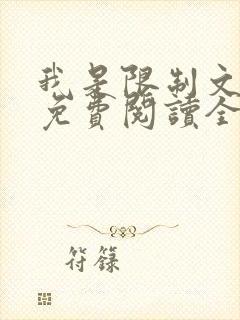 我是限制文
免費閱讀全
符籙